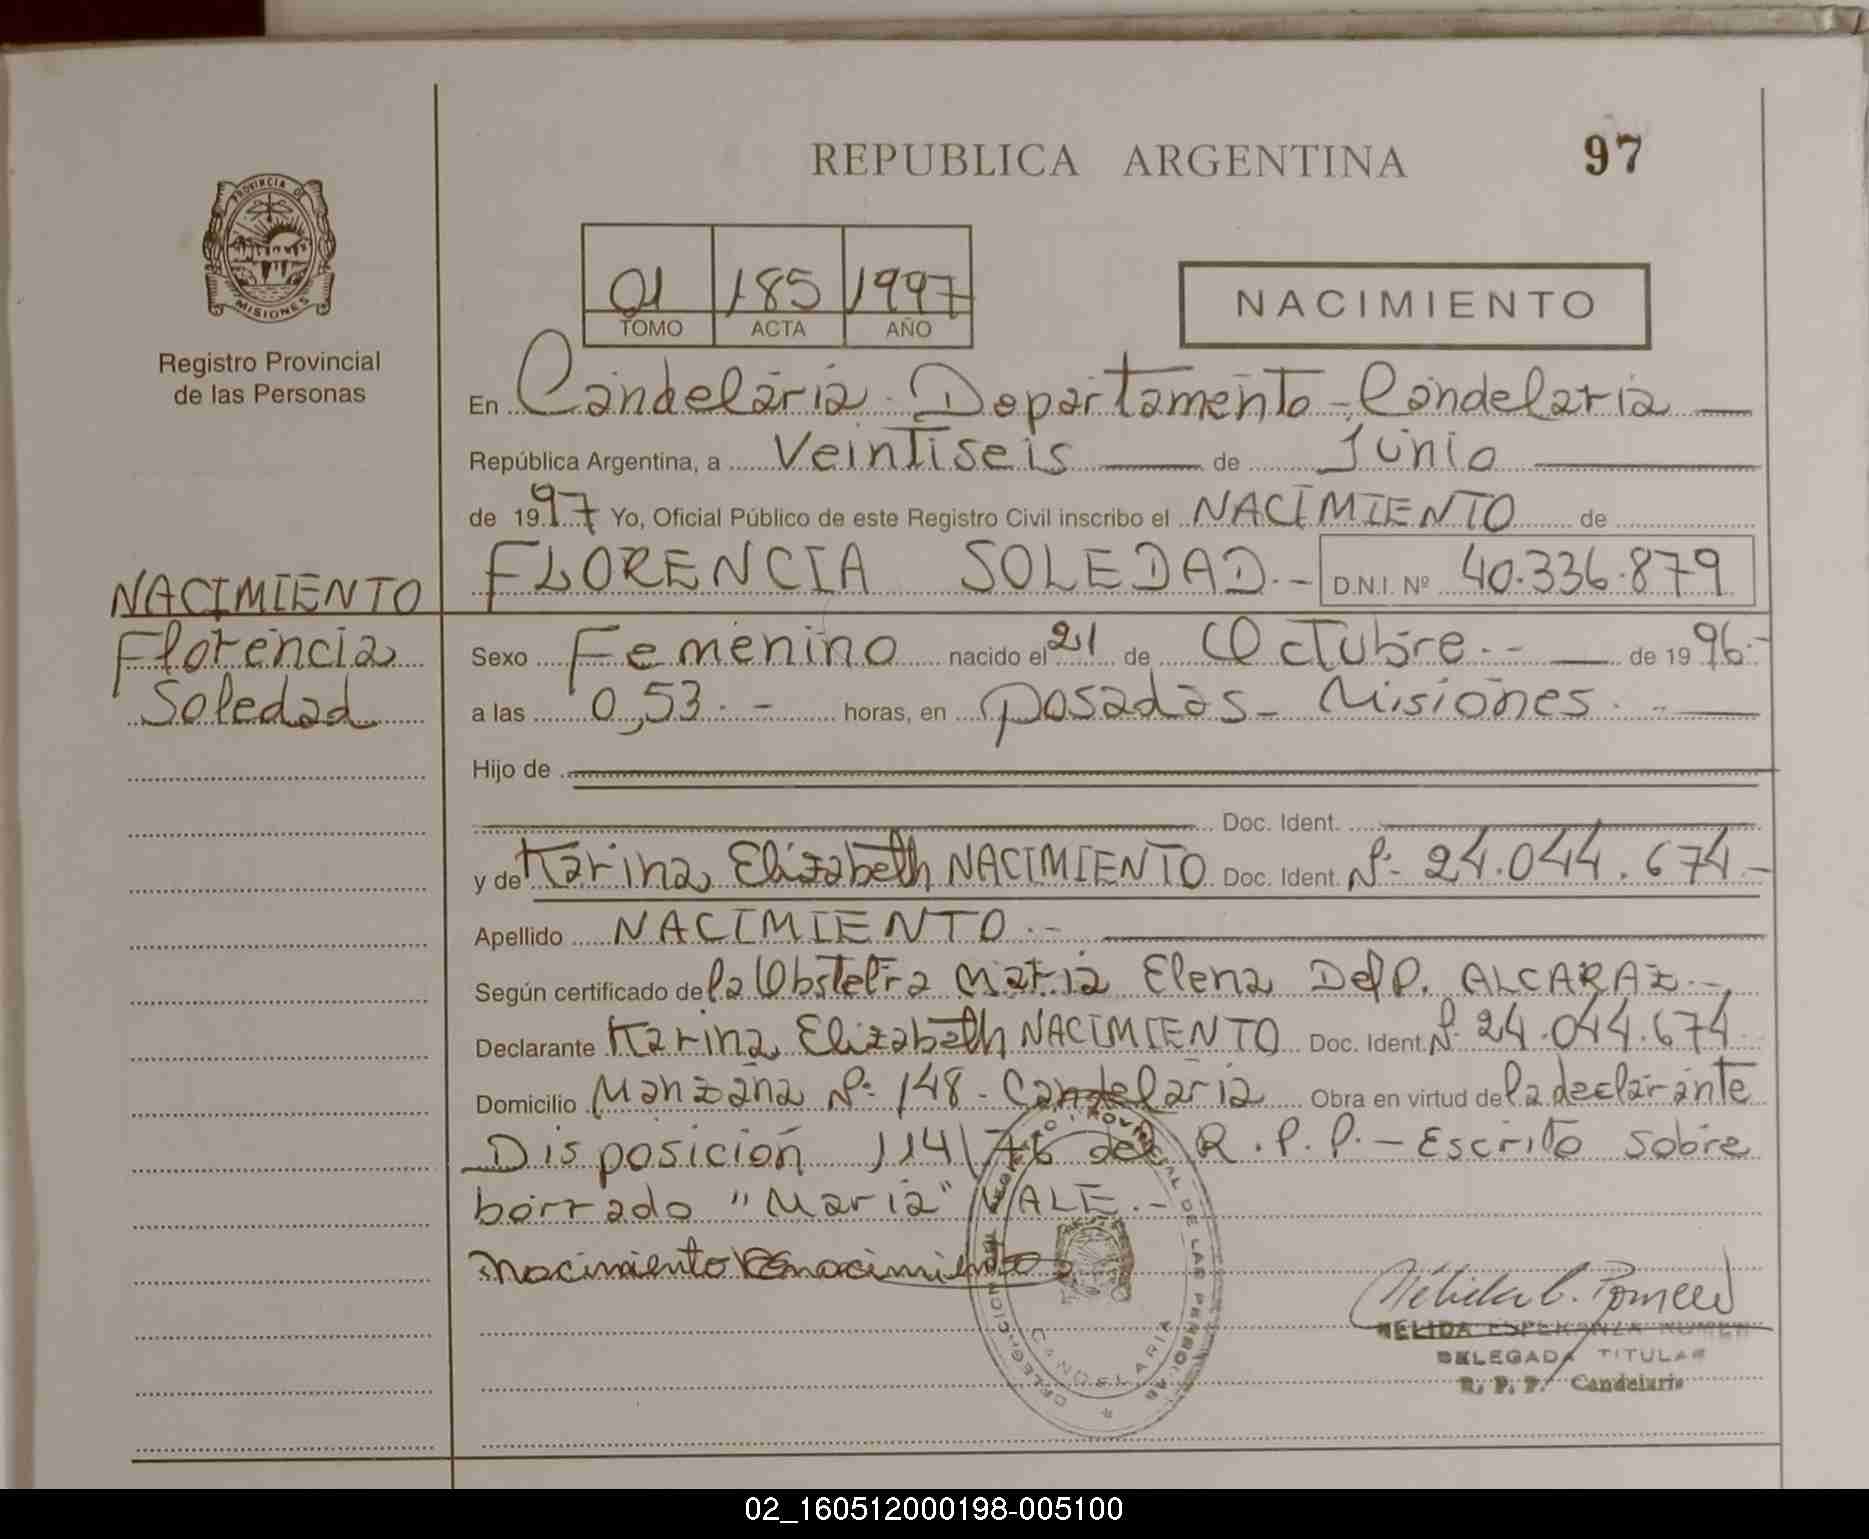 REPUBLICA ARGENTINA
97
PROVINCIA DE
MISIONES
Registro Provincial
de las Personas
01 185 1997
TOMO ACTA AÑO
NACIMIENTO
En Candelaria Departamento - Candelaria
República Argentina, a Veintiseis de Junio
de 1997 Yo, Oficial Público de este Registro Civil inscribo el NACIMIENTO de
FLORENCIA SOLEDAD.- D.N.I. Nº 40.336.879
NACIMIENTO
Florencia
Soledad
Sexo Femenino nacido el 21 de Octubre.- de 1996.-
a las 0,53.- horas, en posadas - Misiones.-
Hijo de
Doc. Ident.
y de Karina Elizabeth NACIMIENTO Doc. Ident. Nº 24.044.674-
Apellido NACIMIENTO.-
Según certificado de la Obstetra Maria Elena Del P. ALCARAZ.-
Declarante Karina Elizabeth NACIMIENTO Doc. Ident. Nº 24.044.674
Domicilio Manzana Nº 148 - Candelaria Obra en virtud de la declarante
Disposición 114/76 del R.P.P.- Escrito sobre
borrado "Maria" VALE.-
nacimiento
DELEGADA TITULAR
R. P. P. Candelaria
CANDELARIA
02_160512000198-005100